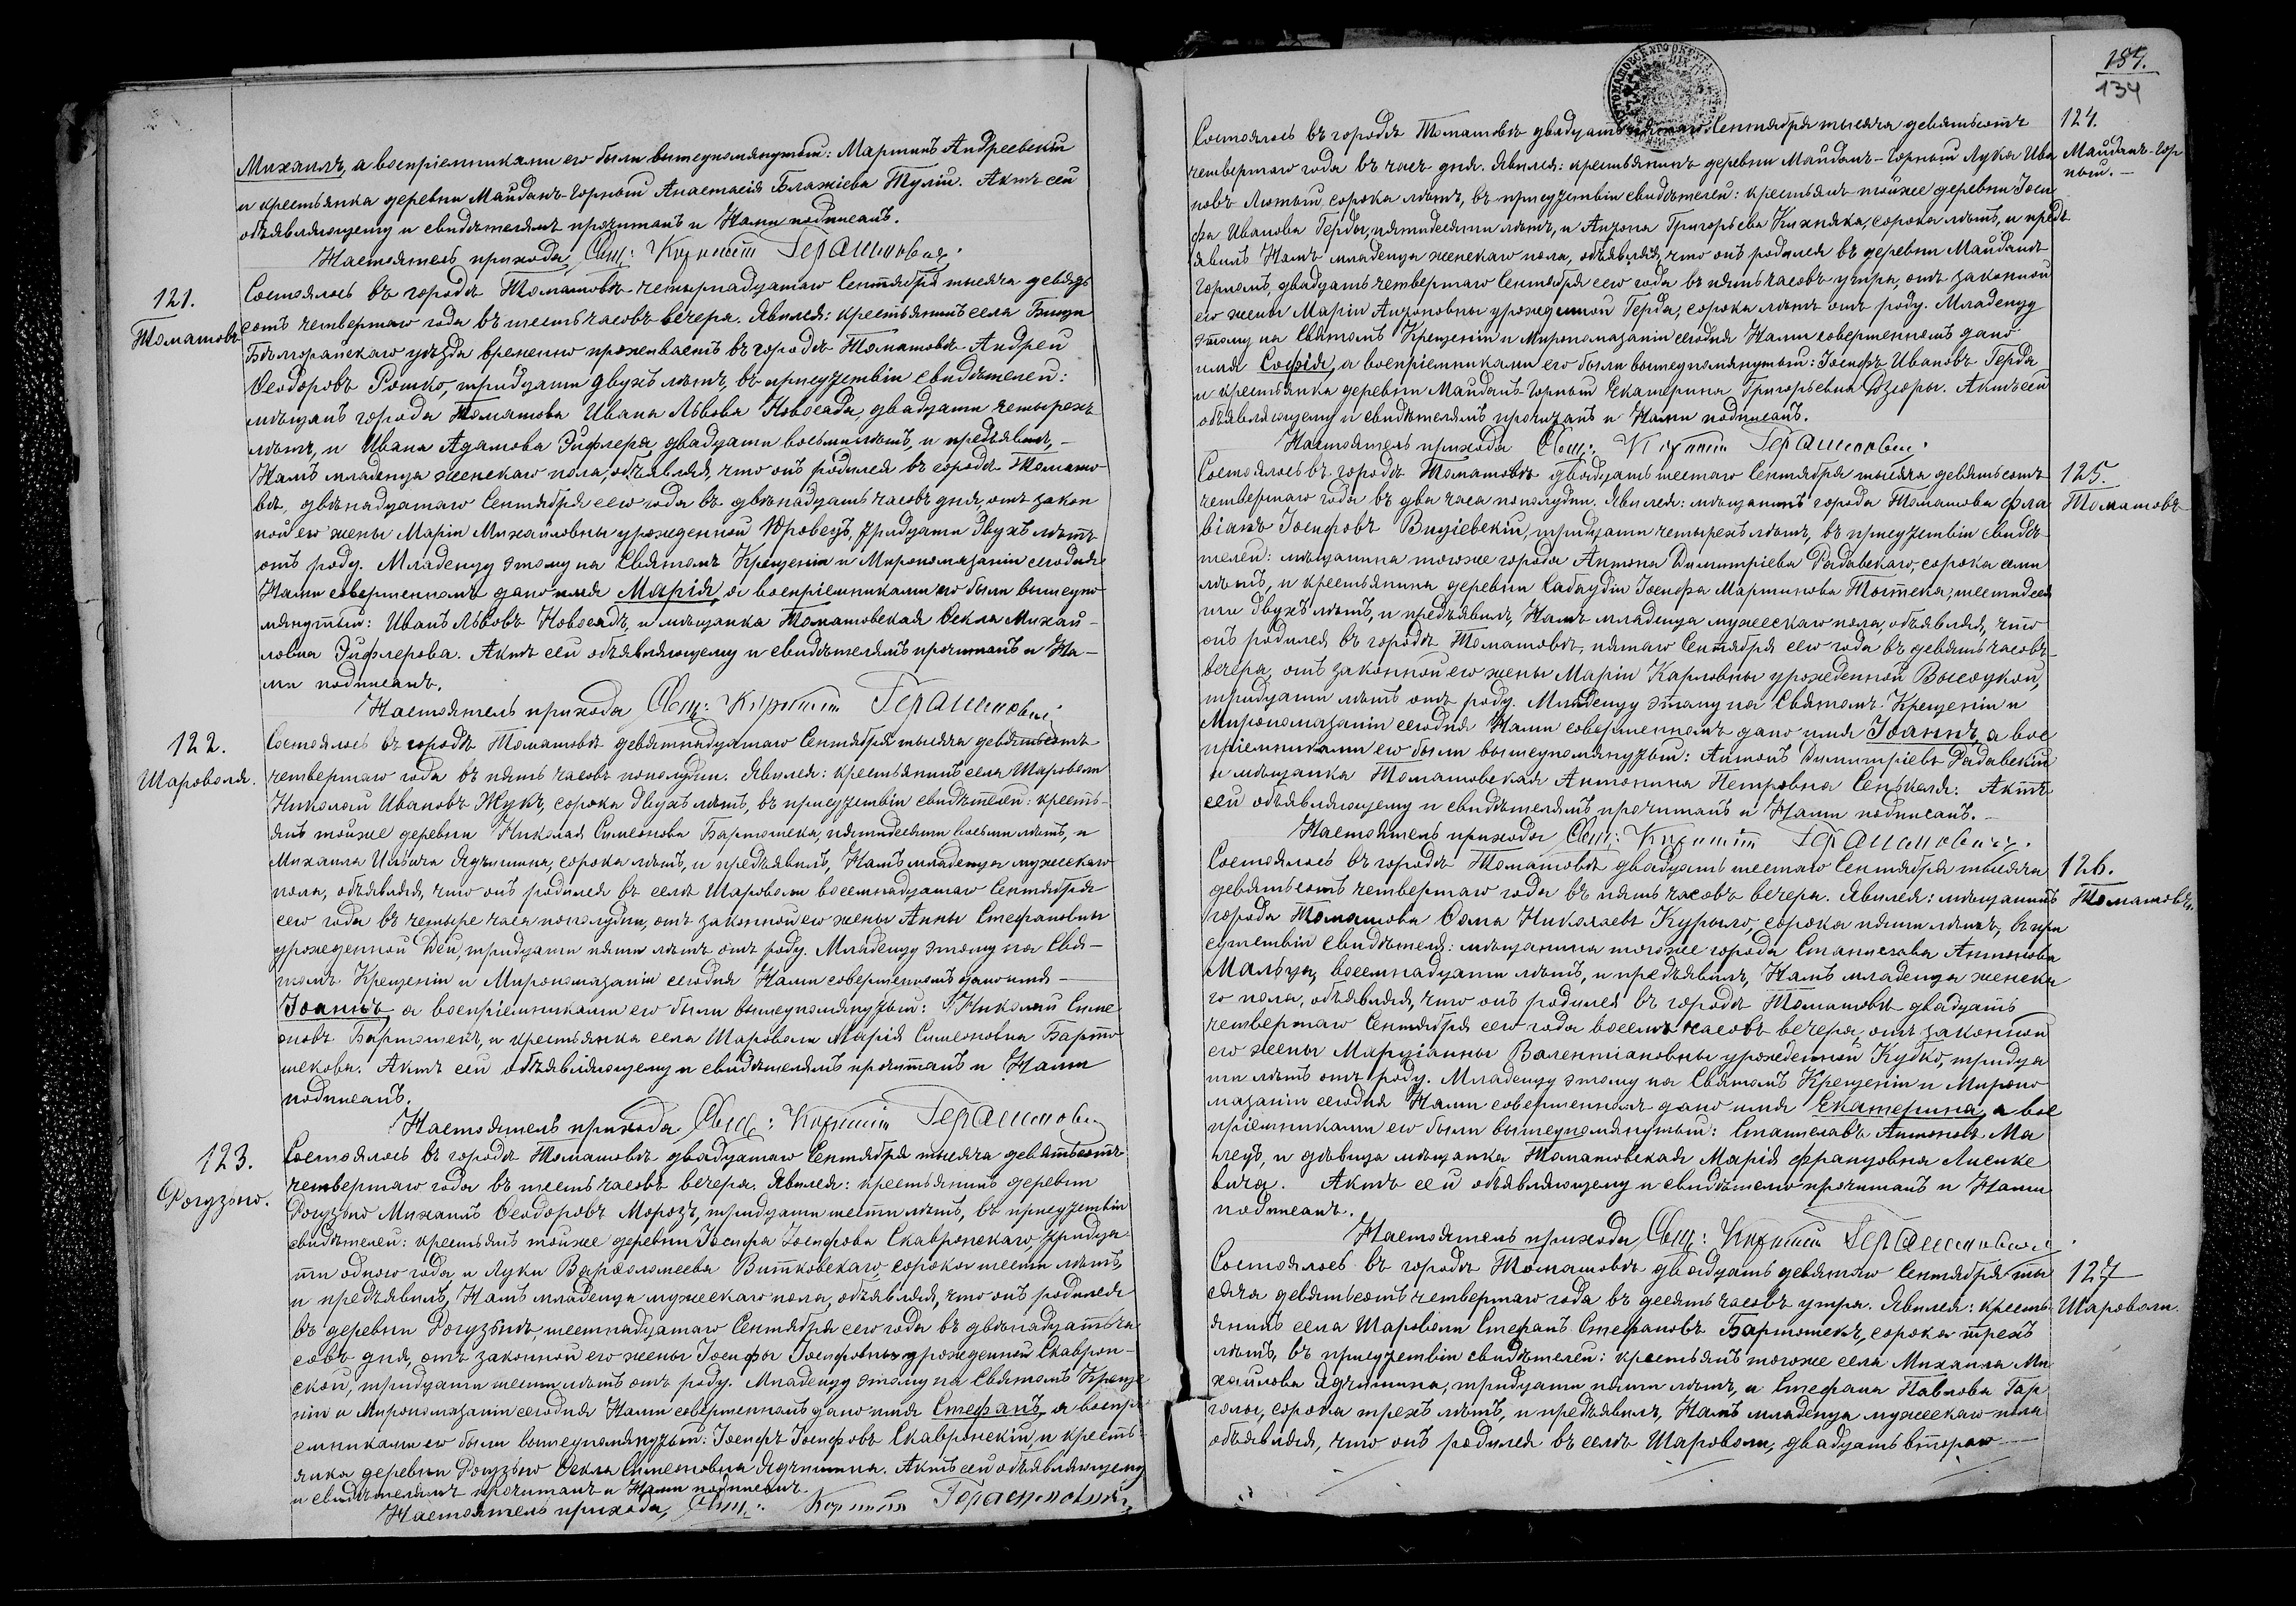 Михаилъ, а воспріемниками его были вышеупомянутый: Мартинъ Андреевскій
и крестьянка деревни Майданъ-Горный Анастасія Блажіева Тулій. Актъ сей
объявляющему и свидѣтелямъ прочитанъ и Нами подписанъ.
Настоятель прихода Свящ:
121.
Томашовъ
Состоялось въ городѣ Томашовѣ четырнадцатаго Сентября тысяча девядь
сотъ четвертаго года въ шесть часовъ вечера. Явился: крестьянинъ села Бищи
Бѣлгорайскаго уѣзда временно проживаетъ въ городѣ Томашовѣ Андрей
Ѳеодоровъ Рошко, тридцати двухъ лѣтъ, въ присутствіи свидѣтелей:
мѣщанъ города Томашова Ивана Львова Новосада, двадцати четырехъ
лѣтъ, и Ивана Адамова Эйфлера, двадцати восьми лѣтъ, и предъявилъ,
Намъ младенца женскаго пола, объявляя, что онъ родился въ городѣ Томашо
вѣ, двѣнадцатаго Сентября сего года въ двѣнадцать часовъ дня, отъ закон
ной его жены Маріи Михайловны урожденной Юровецъ, тридцати двухъ лѣтъ
отъ роду. Младенцу этому на Святомъ Крещеніи и Миропомазаніи сегодня
Нами совершенномъ дано имя Марія, а воспріемниками его были вышеупо
мянутый: Иванъ Львовъ Новосадъ, и мѣщанка Томашовская Ѳекла Михай-
ловна Эйфлерова. Актъ сей объявляющему и свидѣтелямъ прочитанъ и На-
ми подписанъ.
Настоятель прихода Свящ:
122.
Шароволя.
Состоялось въ городѣ Томашовѣ девятнадцатаго Сентября тысяча девятьсотъ
четвертаго года въ пять часовъ пополудни. Явился: крестьянинъ села Шароволи
Николай Ивановъ Жукъ, сорока двухъ лѣтъ, въ присутствіи свидѣтелей: кресть-
янъ тойже деревни Николая Симеонова Бартошека, пятидесяти восьми лѣтъ, и
Михаила Ильича Ядчишина, сорока лѣтъ, и предъявилъ, Намъ младенца мужескаго
пола, объявляя, что онъ родился въ селѣ Шароволи восемнадцатаго Сентября
сего года въ четыре часа пополудни, отъ законной его жены Анны Стефановны
урожденной Дей, тридцати пяти лѣтъ отъ роду. Младенцу этому на Свя-
томъ Крещеніи и Миропомазаніи сегодня Нами совершенномъ дано имя
Іоаннъ, а воспріемниками его были вышеупомянутый: Николай Симе
оновъ Бартошекъ, и крестьянка села Шароволи Марія Симеоновна Барто-
шекова. Актъ сей объявляющему и свидѣтелямъ прочитанъ и Нами
подписанъ.
Настоятель прихода Свящ:
123.
Рогузьно.
Состоялось въ городѣ Томашовѣ двадцатаго Сентября тысяча девятьсотъ
четвертаго года въ шесть часовъ вечера. Явился: крестьянинъ деревни
Рогузьно Михаилъ Ѳеодоровъ Морозъ, тридцати шести лѣтъ, въ присутствіи
свидѣтелей: крестьянъ тойже деревни Іосифа Іосифова Скавронскаго, тридца
ти одного года и Луки Варѳоломеева Витковскаго, сорока шести лѣтъ,
и предъявилъ, Намъ младенца мужескаго пола, объявляя, что онъ родился
въ деревни Рогузьнѣ, шестнадцатаго Сентября сего года въ двѣнадцать ча
совъ дня, отъ законной его жены Іосифы Іосифовны урожденной Скаврон-
ской, тридцати шести лѣтъ отъ роду. Младенцу этому на Святомъ Креще
ніи и Миропомазаніи сегодня Нами совершенномъ дано имя Стефанъ, а воспрі
емниками его были вышеупомянутый: Іосифъ Іосифовъ Скавронскій, и кресть-
янка деревни Рогузьно Ѳекла Симеоновна Ядчишина. Актъ сей объявляющему
и свидѣтелямъ прочитанъ и Нами подписанъ.
Настоятель прихода, Свящ:
134
124.
Майданъ-Гор
ный.
Состоялось въ городѣ Томашовѣ двадцать Сентября тысяча девятьсотъ
четвертаго года въ часъ дня. Явился: крестьянинъ деревни Майданъ-Горный Лука Ива
новъ Лютый, сорока лѣтъ, въ присутствіи свидѣтелей: крестьянъ тойже деревни Іоси
фа Иванова Герды, пятидесяти лѣтъ, и Антона Григорьева Кихняка, сорока лѣтъ, и предъ
явилъ Намъ младенца женскаго пола, объявляя, что онъ родился въ деревни Майданѣ
Горномъ, двадцать четвертаго Сентября сего года въ пять часовъ утра, отъ законной
его жены Маріи Антоновны урожденной Герда, сорока лѣтъ отъ роду. Младенцу
этому на Святомъ Крещеніи и Миропомазаніи сегодня Нами совершенномъ дано
имя Софія, а воспріемниками его были вышеупомянутый: Іосифъ Ивановъ Герда
и крестьянка деревни Майданъ-Горный Екатерина Григорьевна Дзюры. Актъ сей
объявляющему и свидѣтелямъ прочитанъ и Нами подписанъ.
Настоятель прихода Свящ:
125.
Томашовъ
Состоялось въ городѣ Томашовѣ двадцать шестаго Сентября тысяча девятьсотъ
четвертаго года въ два часа пополудни. Явился: мѣщанинъ города Томашова Фла
віанъ Іосифовъ тридцати четырехъ лѣтъ, въ присутствіи свидѣ-
телей: мѣщанина тогоже города Антона Димитріева Радавскаго, сорока семи
лѣтъ, и крестьянина деревни Сабаудіи Іосифа Мартинова шестидеся
ти двухъ лѣтъ, и предъявилъ, Намъ младенца мужескаго пола, объявляя, что
онъ родился въ городѣ Томашовѣ, пятаго Сентября сего года въ девять часовъ
вечера, отъ законной его жены Маріи Карловны урожденной Высоцкой,
тридцати лѣтъ отъ роду. Младенцу этому на Святомъ Крещеніи и
Миропомазаніи сегодня Нами совершенномъ дано имя Іоаннъ, а вос
пріемниками его были вышеупомянутый: Антонъ Димитріевъ Радавскій
и мѣщанка Томашовская Антонина Петровна Сеньколя. Актъ
сей объявляющему и свидѣтелямъ прочитанъ и Нами подписанъ.
Настоятель прихода Свящ:
126.
Томашовъ.
Состоялось въ городѣ Томашовѣ двадцать шестаго Сентября тысяча
девятьсотъ четвертаго года въ пять часовъ вечера. Явился: мѣщанинъ
города Томашова Ѳома Николаевъ Курыло, сорока пяти лѣтъ, въ при
сутствіи свидѣтеля: мѣщанина тогоже города Станислава Антонова
Мальца, восемнадцати лѣтъ, и предъявилъ, Намъ младенца женска
го пола, объявляя, что онъ родился въ городѣ Томашовѣ двадцать
четвертаго Сентября сего года восемь часовъ вечера, отъ законной
его жены Марціанны Валентіановны урожденной Кудко, тридца
ти лѣтъ отъ роду. Младенцу этому на Святомъ Крещеніи и Миропо
мазаніи сегодня Нами совершенномъ дано имя Екатерина, а вос
пріемниками его были вышеупомянутый: Станиславъ Антоновъ Ма
лецъ, и дѣвица мѣщанка Томашовская Марія Францовна Лиске
вича. Актъ сей объявляющему и свидѣтелю прочитанъ и Нами
подписанъ.
Настоятель прихода Свящ:
127
Шароволи.
Состоялось въ городѣ Томашовѣ двадцать девятаго Сентября ты
сяча девятьсотъ четвертаго года въ десять часовъ утра. Явился: кресть-
янинъ села Шароволи Стефанъ Стефановъ Бартошекъ, сорока трехъ
лѣтъ, въ присутствіи свидѣтелей: крестьянъ тогоже села Михаила Ми
хайлова Ядчишина, тридцати пяти лѣтъ, и Стефана Павлова Гар
голы, сорока трехъ лѣтъ, и предъявилъ, Намъ младенца мужескаго пола
объявляя, что онъ родился въ селѣ Шароволи, двадцать втораго